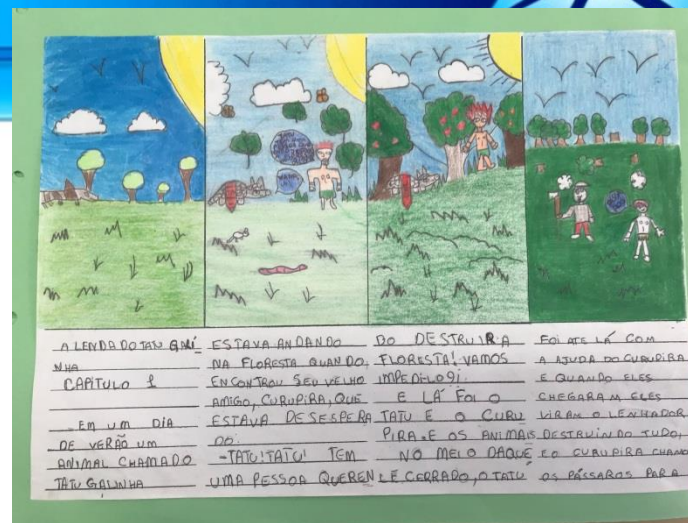 A LENDA DO TATU GALI-
NHA
CAPÍTULO 1
EM UM DIA
DE VERÃO UM
ANIMAL CHAMADO
TATU GALINHA
ESTAVA ANDANDO
NA FLORESTA QUANDO,
ENCONTROU SEU VELHO
AMIGO, CURUPIRA, QUE
ESTAVA DESESPERA
DO.
-TATU! TATU! TEM
UMA PESSOA QUEREN
DO DESTRUIR A
FLORESTA! VAMOS
IMPEDI-LO
E LÁ FOI O
TATU E O CURU
PIRA. E OS ANIMAIS
NO MEIO DAQUE
LE CERRADO, O TATU
FOI ATE LÁ COM
A AJUDA DO CURUPIRA
E QUANDO ELES
CHEGARAM ELES
VIRAM O LENHADOR
DESTRUINDO TUDO,
E O CURUPIRA CHAMO
OS PÁSSAROS PARA